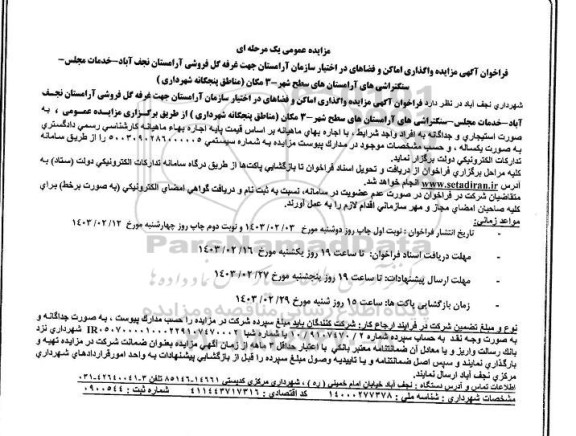 مزایده عمومی یک مرحله ای
فراخوان آگهی مزایده واگذاری اماکن و فضاهای در اختیار سازمان آرامستان جهت غرفه گل فروشی آرامستان نجف آباد-خدمات مجلس-
سنگتراشی های آرامستان های سطح شهر-۳ مکان (مناطق پنجگانه شهرداری )
شهرداری نجف آباد در نظر دارد فراخوان آگهی مزایده واگذاری اماکن و فضاهای در اختیار سازمان آرامستان جهت غرفه گل فروشی آرامستان نجف
آباد-خدمات مجلس-سنگتراشی های آرامستان های سطح شهر-۳ مکان (مناطق پنجگانه شهرداری ) از طریق برگزاری مزایده عمومی ، به
صورت استیجاری و جداگانه به افراد واجد شرایط ، با اجاره بهای ماهیانه بر اساس قیمت پایه اجاره بهاء ماهیانه کارشناسی رسمی دادگستری
به صورت یکساله ، و حسب مشخصات موجود در مدارک پیوست مزایده به شماره سیستمی ۵۰۰۳۰۹۰۲۸۶۰۰۰۰۰۵ را از طریق سامانه
تدارکات الکترونیکی دولت برگزار نماید.
کلیه مراحل برگزاری فراخوان از دریافت و تحویل اسناد فراخوان تا بازگشایی پاکت‌ها از طریق درگاه سامانه تدارکات الکترونیکی دولت (ستاد) به
آدرس www.setadiran.ir انجام خواهد شد.
متقاضیان شرکت در فراخوان در صورت عدم عضویت در سامانه، نسبت به ثبت نام و دریافت گواهی امضای الکترونیکی (به صورت برخط) برای
کلیه صاحبان امضای مجاز و مهر سازمانی اقدام لازم را به عمل آورند.
مواعد زمانی:
- تاریخ انتشار فراخوان : نوبت اول چاپ روز دوشنبه مورخ ۱۴۰۳/۰۲/۰۳ و نوبت دوم چاپ روز چهارشنبه مورخ ۱۴۰۳/۰۲/۱۲
- مهلت دریافت اسناد فراخوان: تا ساعت ۱۹ روز یکشنبه مورخ ۱۴۰۳/۰۲/۱۶
- مهلت ارسال پیشنهادات: تا ساعت ۱۹ روز پنجشنبه مورخ ۱۴۰۳/۰۲/۲۷
- زمان بازگشایی پاکت ها: ساعت ۱۵ روز شنبه مورخ ۱۴۰۳/۰۲/۲۹
نوع و مبلغ تضمین شرکت در فرایند ارجاع کار: شرکت کنندگان باید مبلغ سپرده شرکت در مزایده را حسب مدارک پیوست ، به صورت جداگانه و
به صورت وجه نقد به حساب سپرده شماره با شماره شبا شهرداری نزد
بانک رسالت واریز و یا معادل آن ضمانتنامه معتبر بانکی با اعتبار حداقل ۳ ماهه از زمان آگهی مزایده بعنوان ضمانت شرکت در مزایده تهیه و
بارگذاری نمایند و سپس اصل ضمانتنامه و یا تاییدیه وصول مبلغ سپرده را قبل از بازگشایی پیشنهادات به واحد امورقراردادهای شهرداری
مرکزی نجف آباد ارسال نمایند.
اطلاعات تماس و آدرس دستگاه : نجف آباد خیابان امام خمینی (ره ) ، شهرداری مرکزی کدپستی ۸۵۱۴۶-۱۴۶۶۱ تلفن ۳-۰۳۱-۴۲۶۴۰۰۴۱
مشخصات شهرداری : شناسه ملی : ۱۴۰۰۰۲۷۷۳۷۸ کد اقتصادی : ۴۱۱۴۴۳۷۱۷۳۱۶ شماره ثبت : ۰۹۰۰۵۴۴